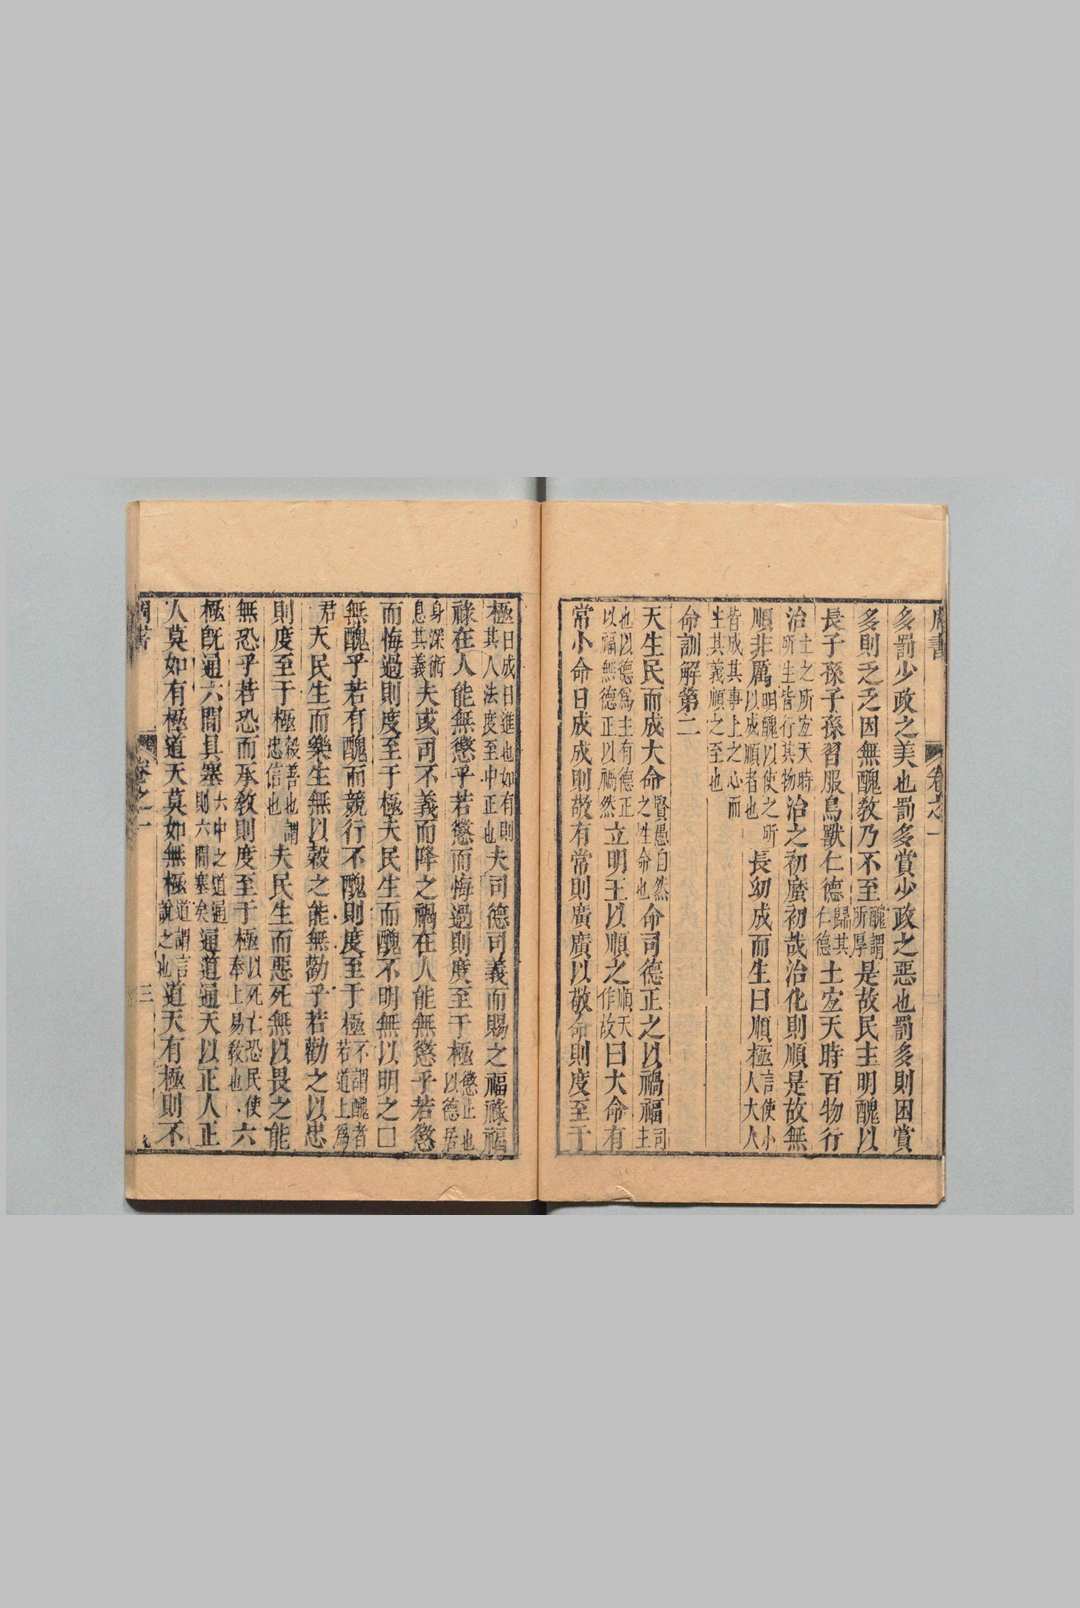 周書 卷之一
多罰少政之美也罰多賞少政之惡也罰多則困賞
多則乏乏困無醜教乃不至醜謂所厚是故民主明醜以
長子孫子孫習服鳥獸仁德歸其仁德土宐天時百物行
治土之所宐天時所生皆行其物治之初廢初哉治化則順是故無
順非厲明醜以使之所以成順者也長幼成而生曰順極言使小人大人
皆成其事上之心而生其義順之至也
命訓解第二
天生民而成大命賢愚自然之性命也命司德正之以禍福司主
也以德爲主有德正以福無德正以禍然立明王以順之順天作故曰大命有
常小命日成成則敬有常則廣廣以敬命則度至于
極日成日進也如有則其人法度至中正也夫司德司義而賜之福祿福
祿在人能無懲乎若懲而悔過則度至于極懲止也以德居
身深術息其義夫或司不義而降之禍在人能無懲乎若懲
而悔過則度至于極夫民生而醜不明無以明之□
無醜乎若有醜而競行不醜則度至于極不謂醜者若道上爲
君夫民生而樂生無以穀之能無勸乎若勸之以忠
則度至于極穀善也謂忠信也夫民生而惡死無以畏之能
無恐乎若恐而承教則度至于極以死亡恐民使奉上易教也六
極旣通六間具塞六中之道通則六間塞矣通道通天以正人正
人莫如有極道天莫如無極道謂言說之也道天有極則不
周書 卷之一 三